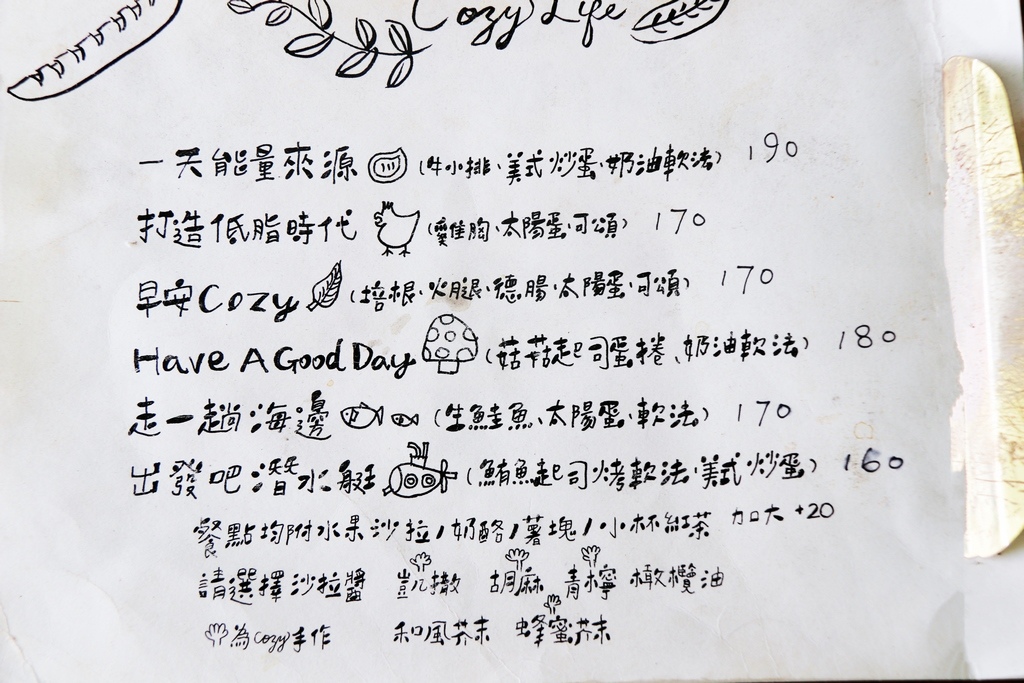 Cozy Life
一天能量來源 (牛小排、美式炒蛋、奶油軟法) 190
打造低脂時代 (雞胸、太陽蛋、可頌) 170
早安Cozy (培根、火腿、德腸、太陽蛋、可頌) 170
Have A Good Day (菇菇起司蛋捲、奶油軟法) 180
走一趟海邊 (生鮭魚、太陽蛋、軟法) 170
出發吧潛水艇 (鮪魚起司烤軟法、美式炒蛋) 160
餐點均附水果沙拉/奶酪/薯塊/小杯紅茶 加大+20
請選擇沙拉醬 凱撒 胡麻 青檸 橄欖油
為cozy手作 和風芥末 蜂蜜芥末